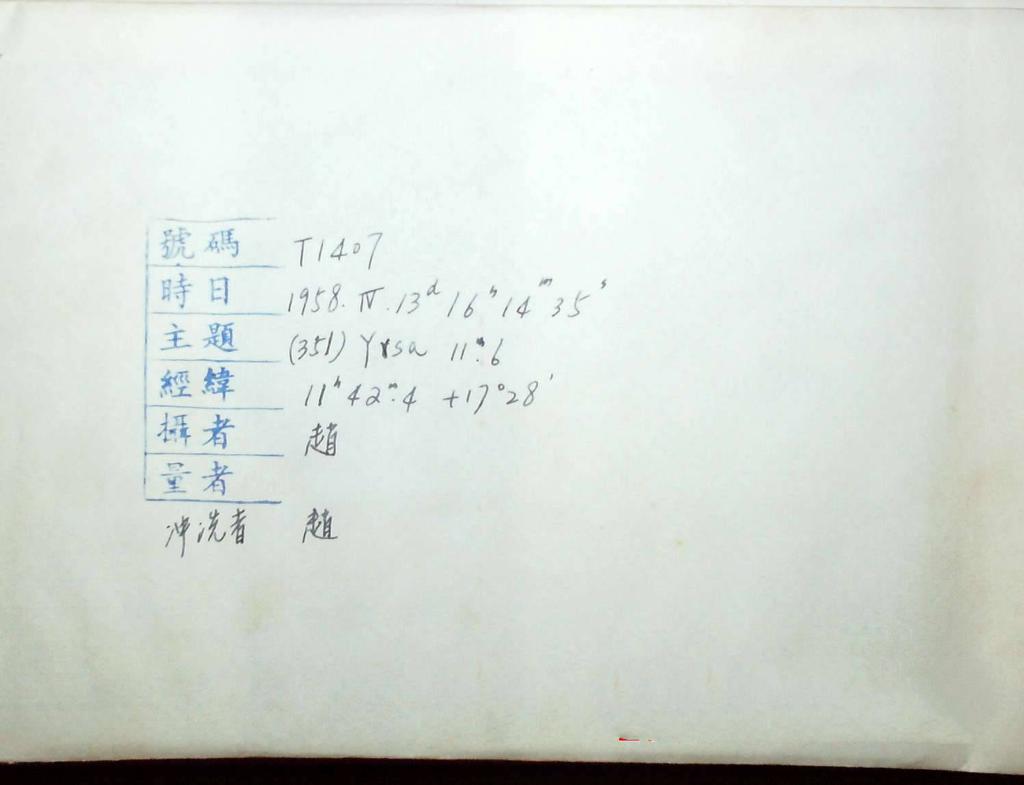 號碼 T1407
時日 1958.IV.13ᵈ 16ʰ 14ᵐ 35ˢ
主題 (351) Yrsa 11ᵐ.6
經緯 11ʰ 42ᵐ.4 +17°28'
攝者 趙
量者
冲洗者 趙